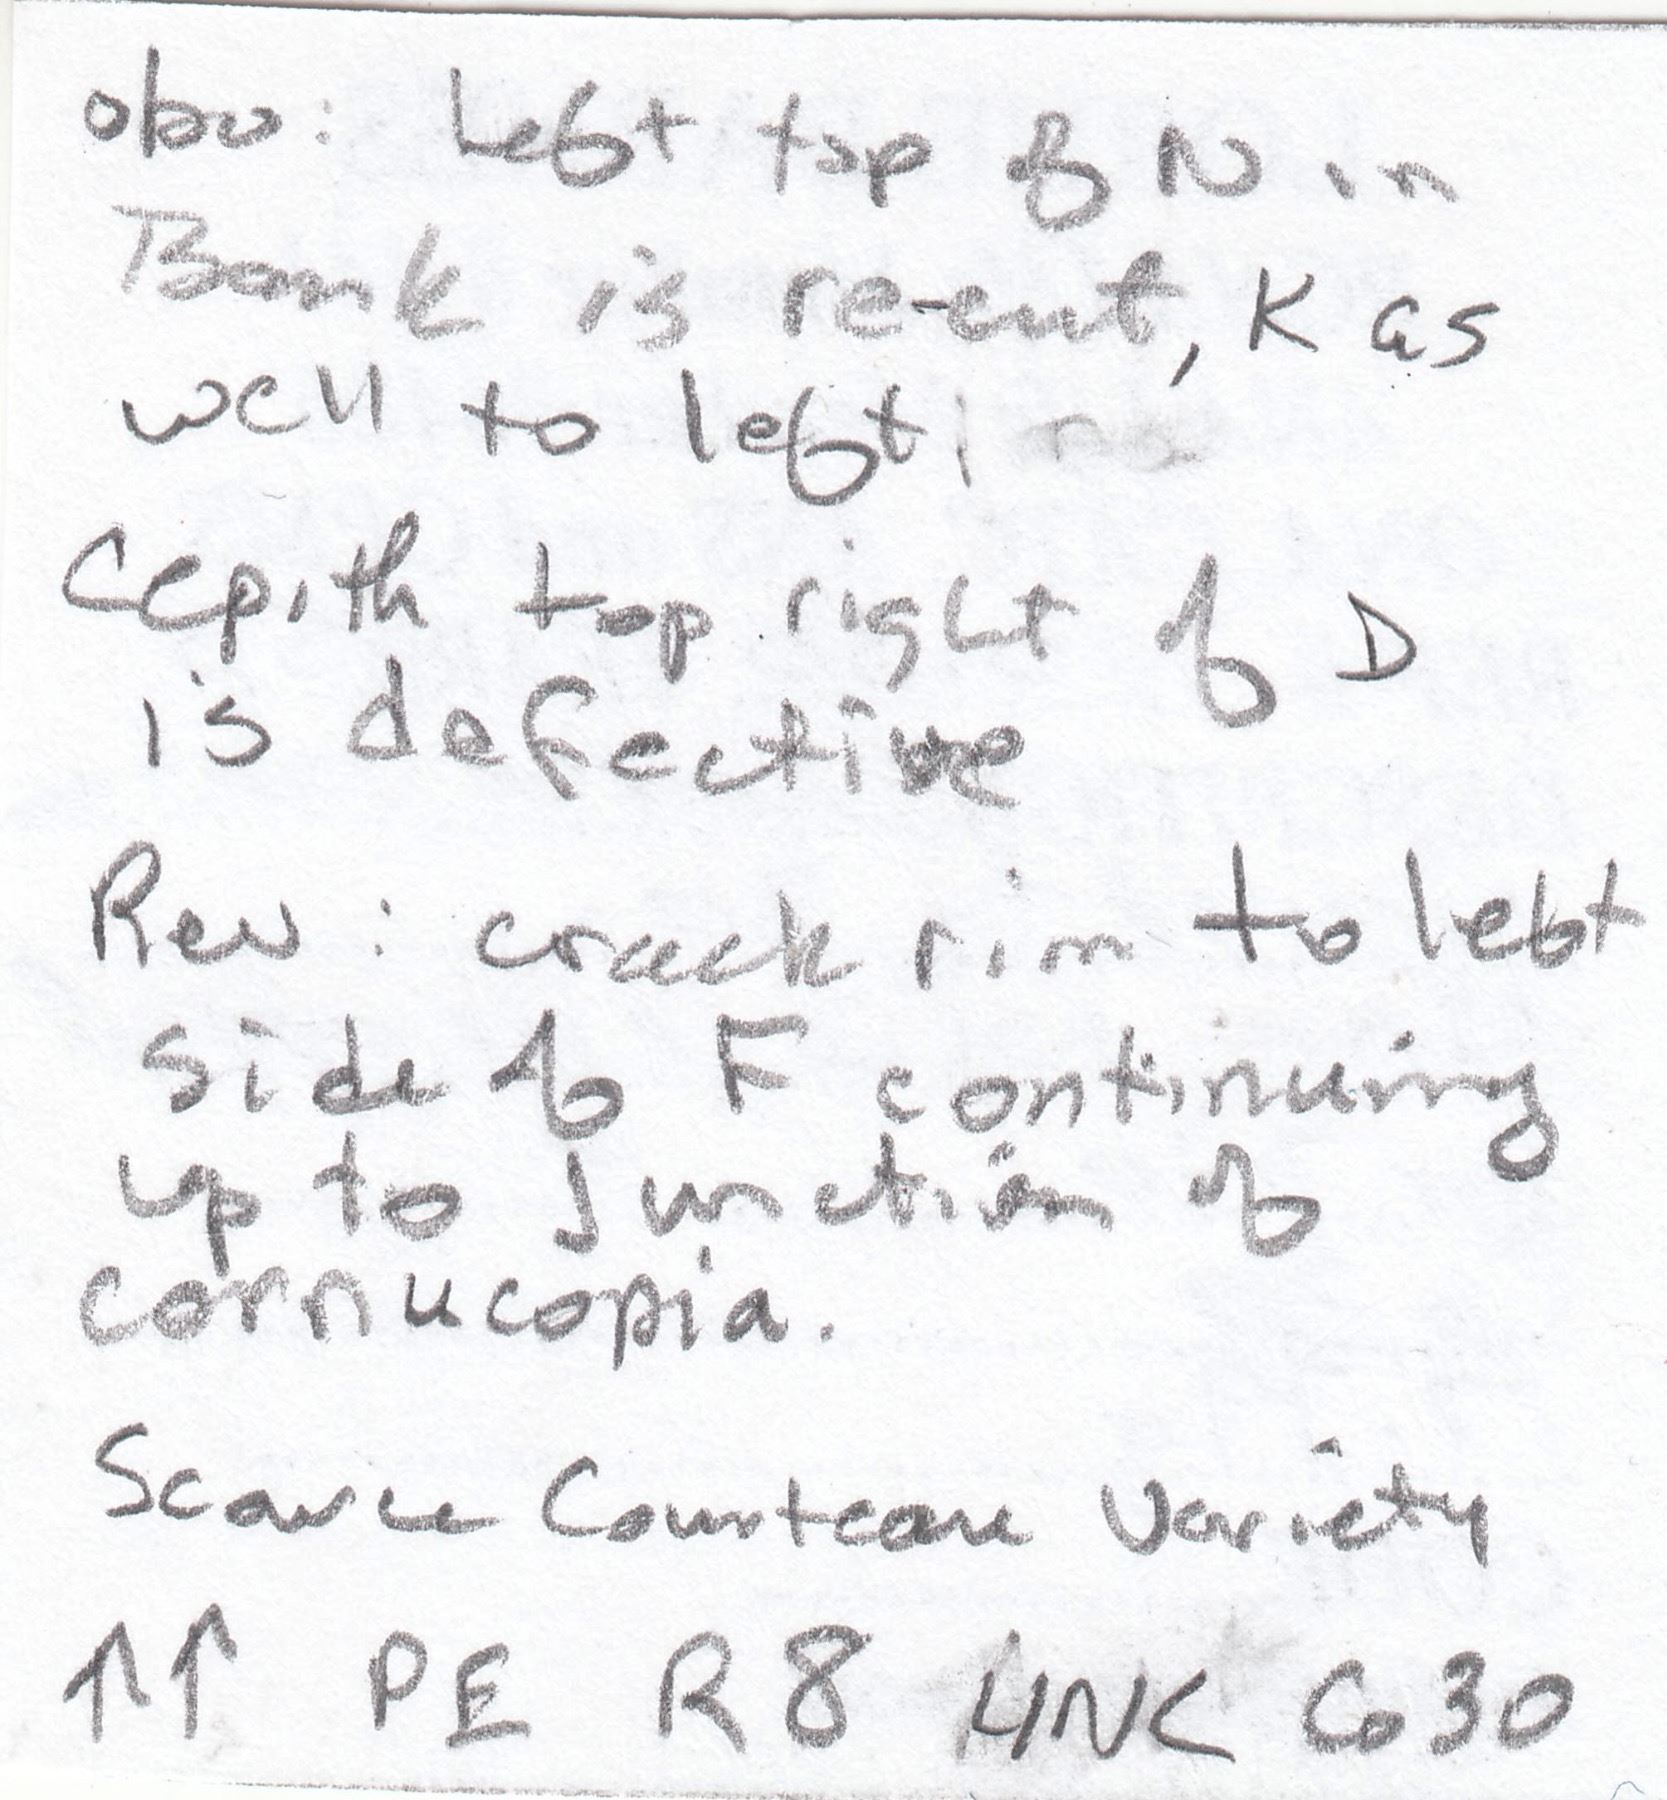 obv: Left top of N in
Bank is re-cut, K as
well to left,
Cepith top right of D
is defective
Rev: crack rim to left
side of F continuing
up to junction of
cornucopia.
Scarce Courteau Variety
↑↑ PE R8 UNC Co30